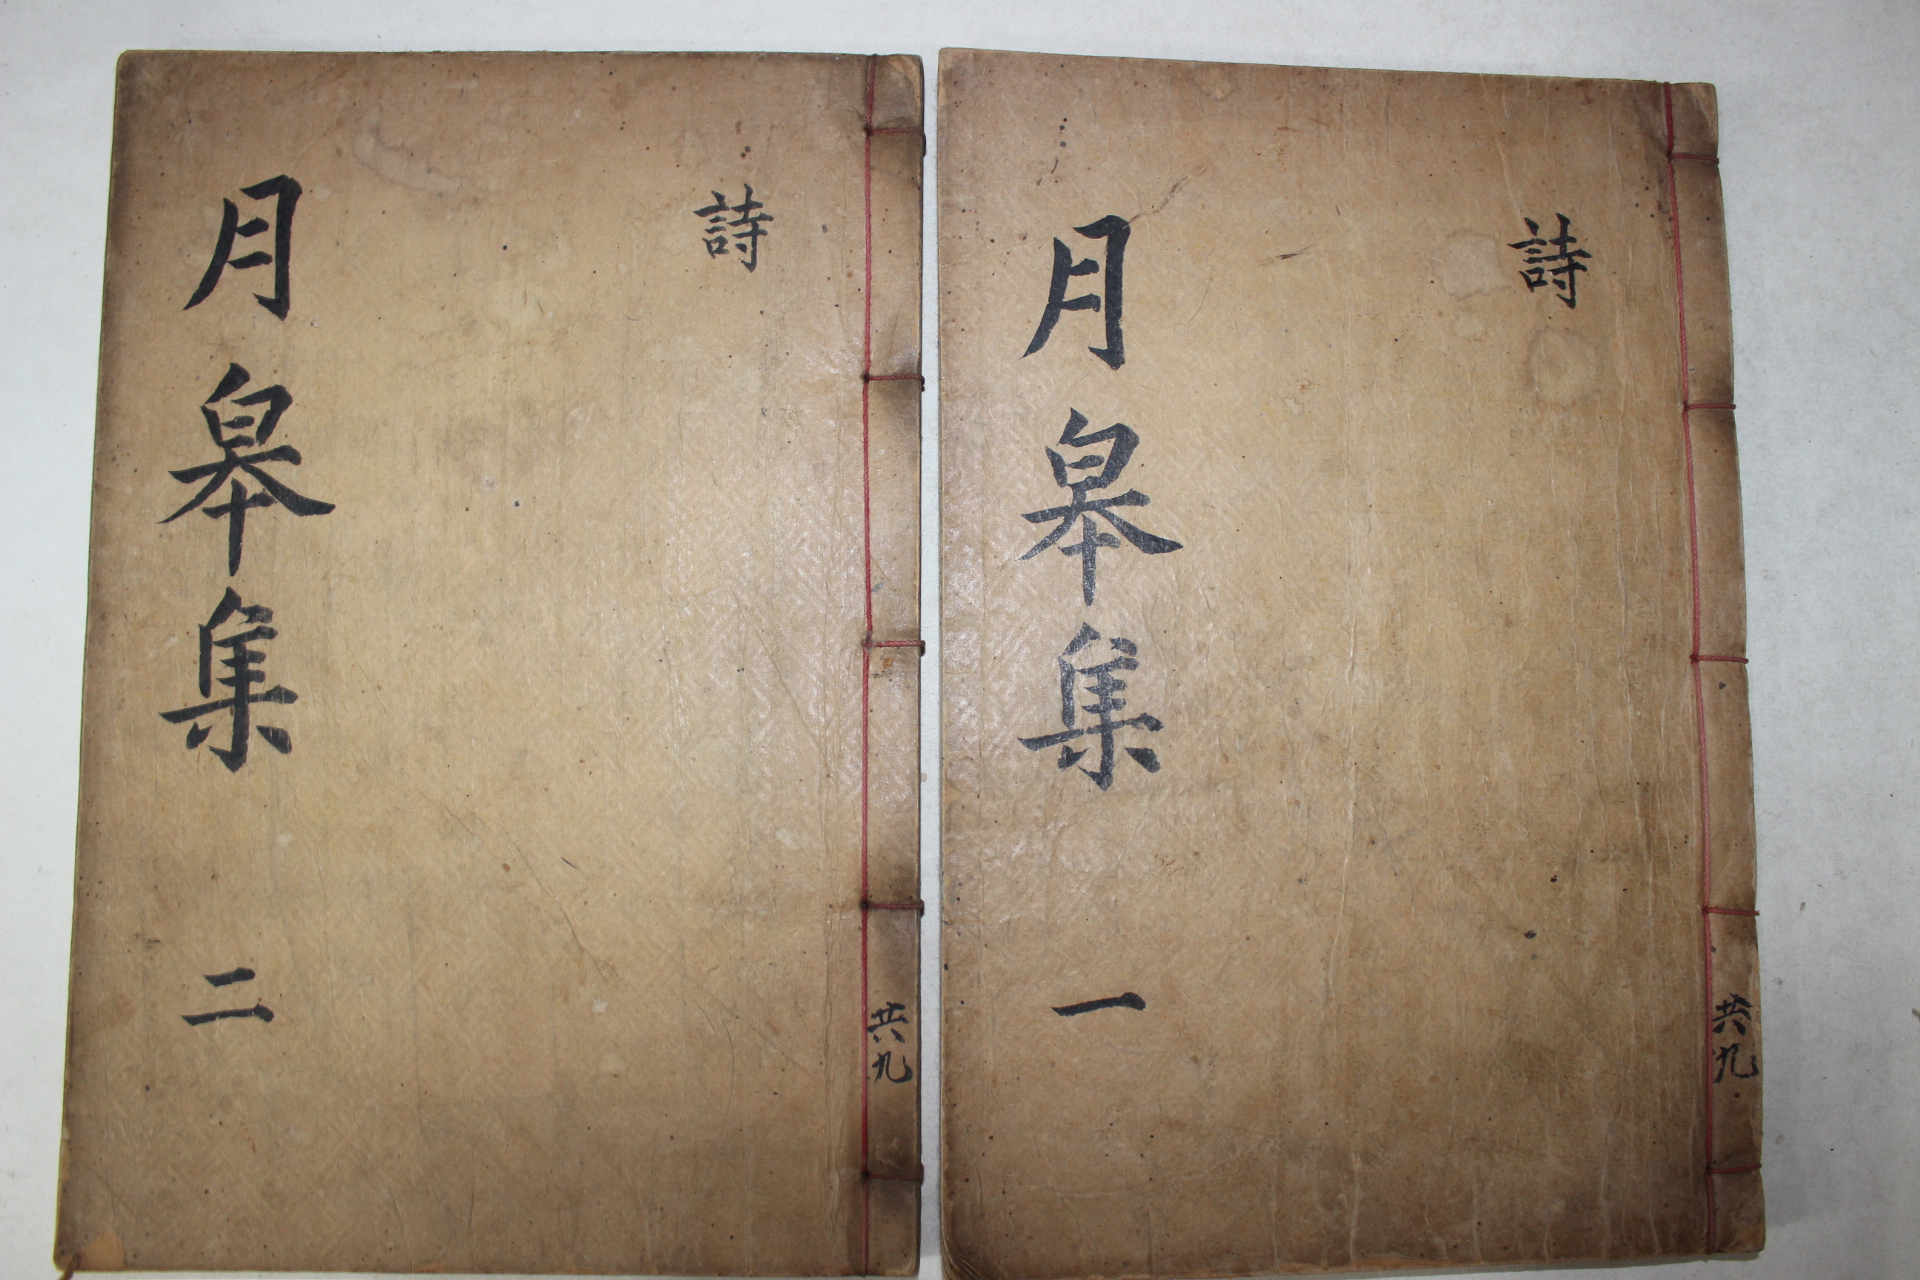 詩
月皐集
一
共九
詩
月皐集
二
共九